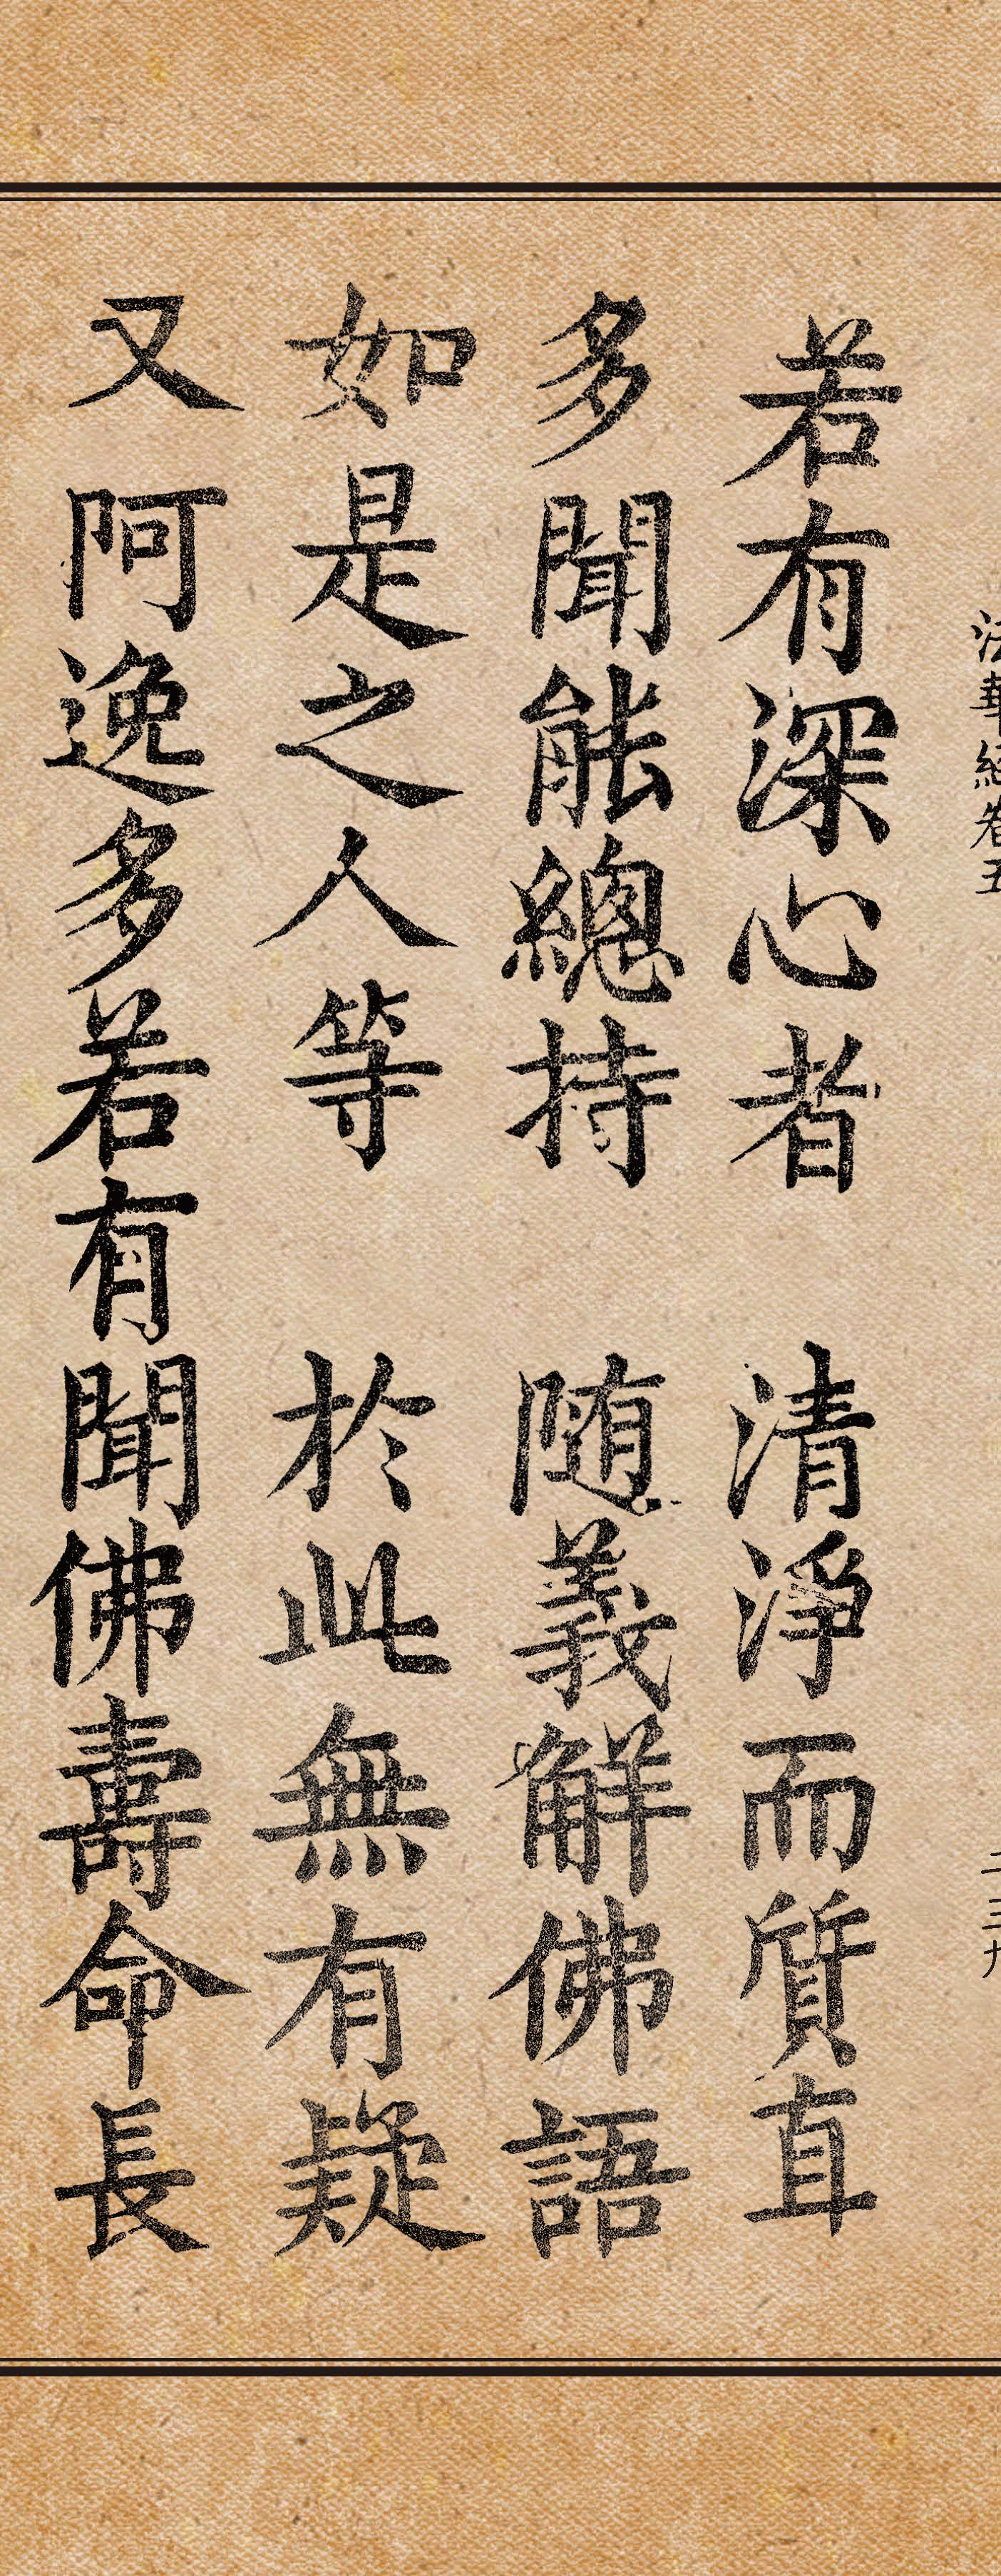 法華經卷五 二三九
若有深心者 清淨而質直
多聞能總持 随義解佛語
如是之人等 於此無有疑
又阿逸多若有聞佛壽命長